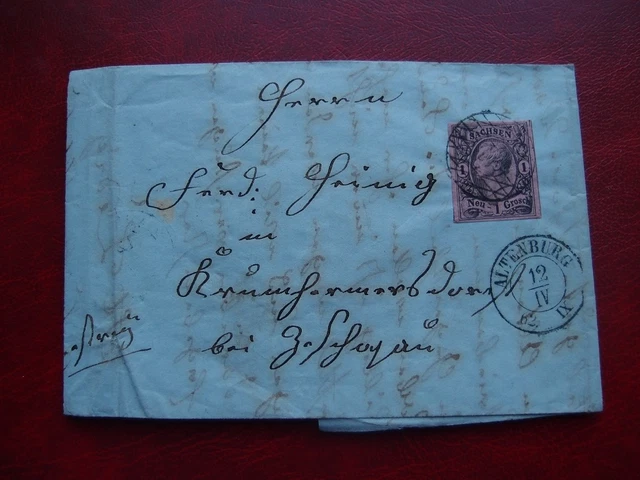 Herrn
Ferd: Heinig
in
Krumhermersdorf
bei Zschopau
SACHSEN
1 1
Neu 1 Grosch
ALTENBURG
12
IV
VI